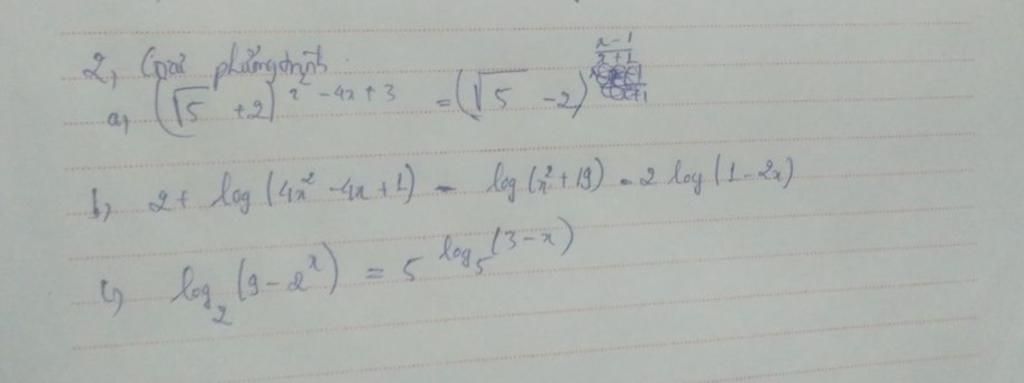 2, Giải phương trình
a, (√5 + 2)^(x² - 4x + 3) = (√5 - 2)^((x - 1)/(x + 1))
b, 2 + log(4x² - 4x + 1) - log(x² + 19) = 2 log(1 - 2x)
c, log₂(9 - 2^x) = 5^(log₅(3 - x))